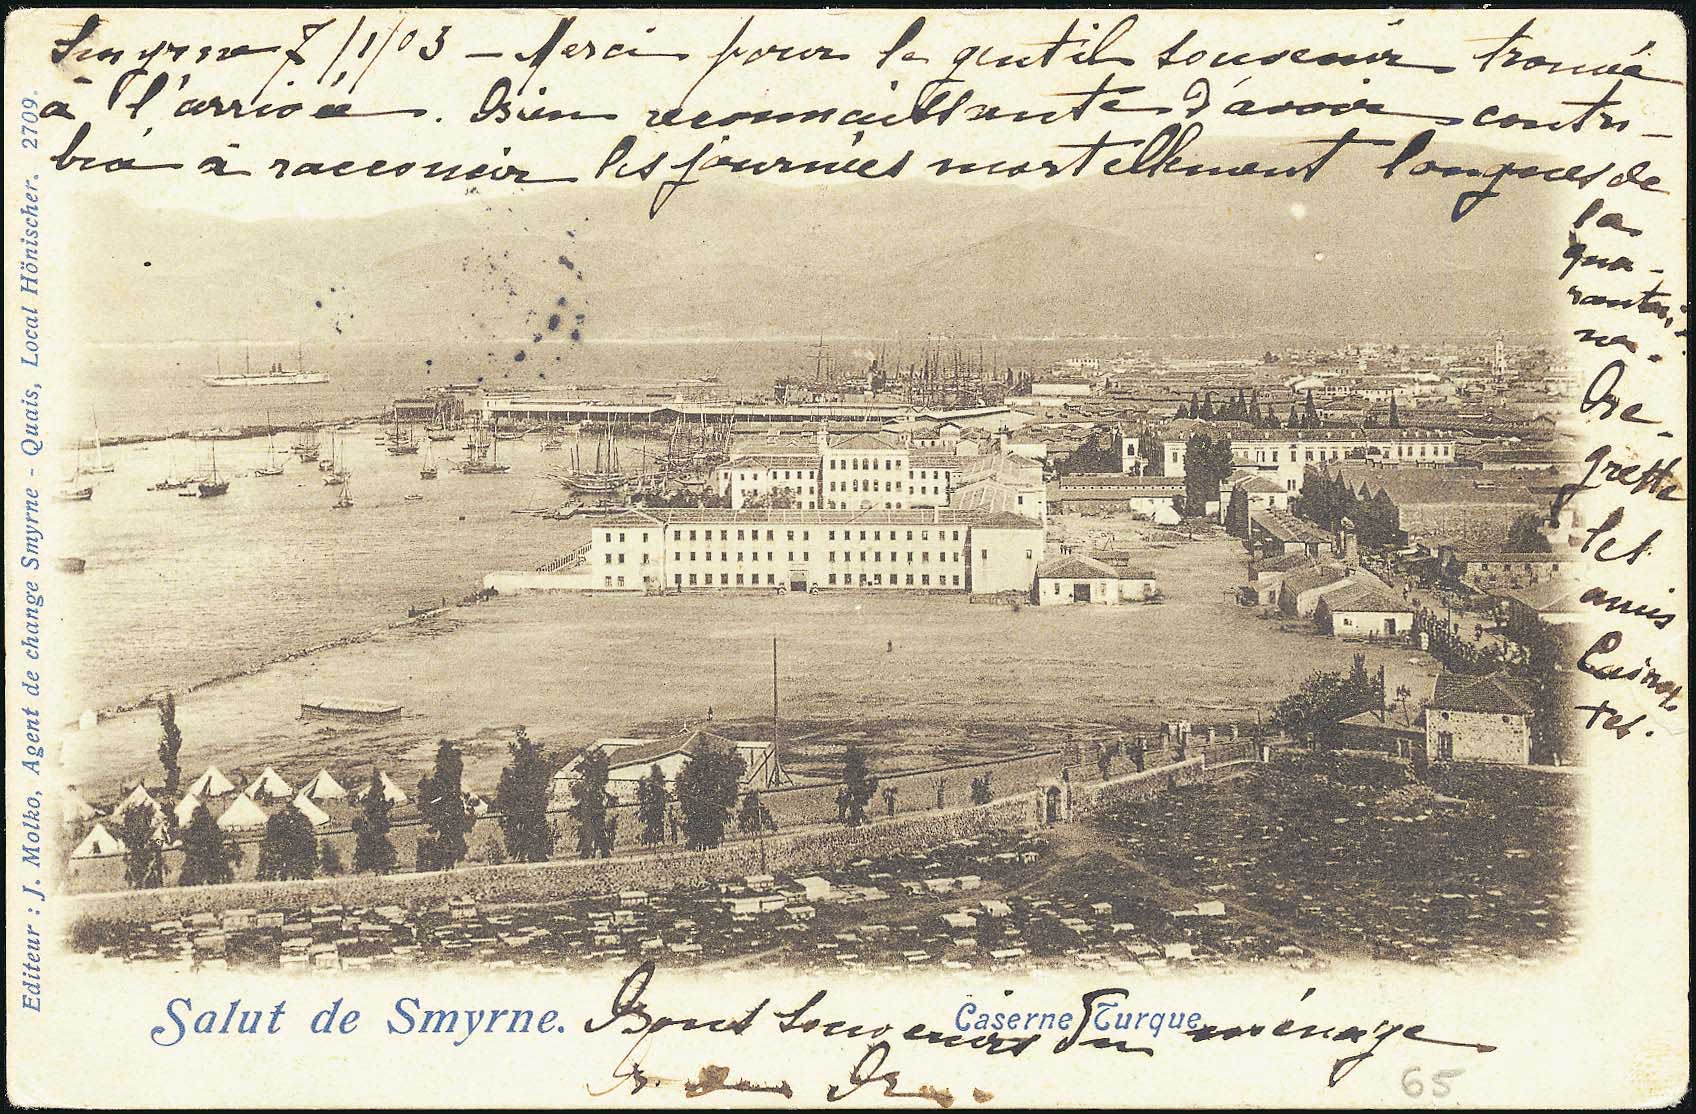 Smyrne 7/1/03 – Merci pour le gentil souvenir trouvé
à l'arrivée. Bien reconnaissante d'avoir contri-
bué à raccourcir les journées mortellement longues de
la
qua-
rantai-
ne.
regrette
les
amis
tes.
Editeur : J. Molko, Agent de change Smyrne - Quais, Local Hönischer. 2709.
Salut de Smyrne.
Caserne Turque
Bons souvenirs du ménage
65